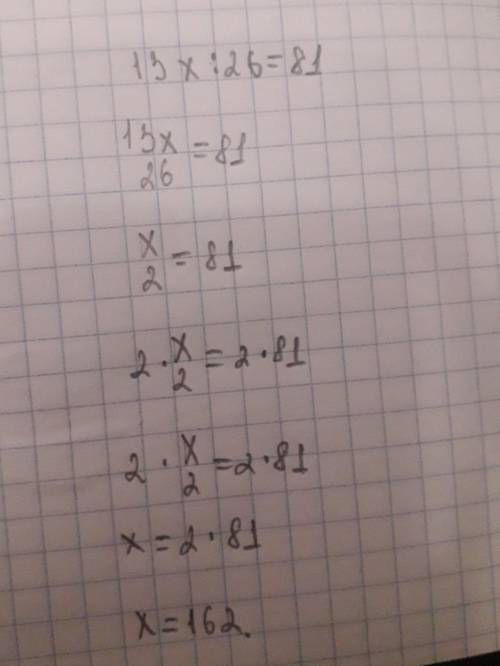 13x:26=81
13x/26=81
x/2=81
2·x/2=2·81
2·x/2=2·81
x=2·81
x=162.